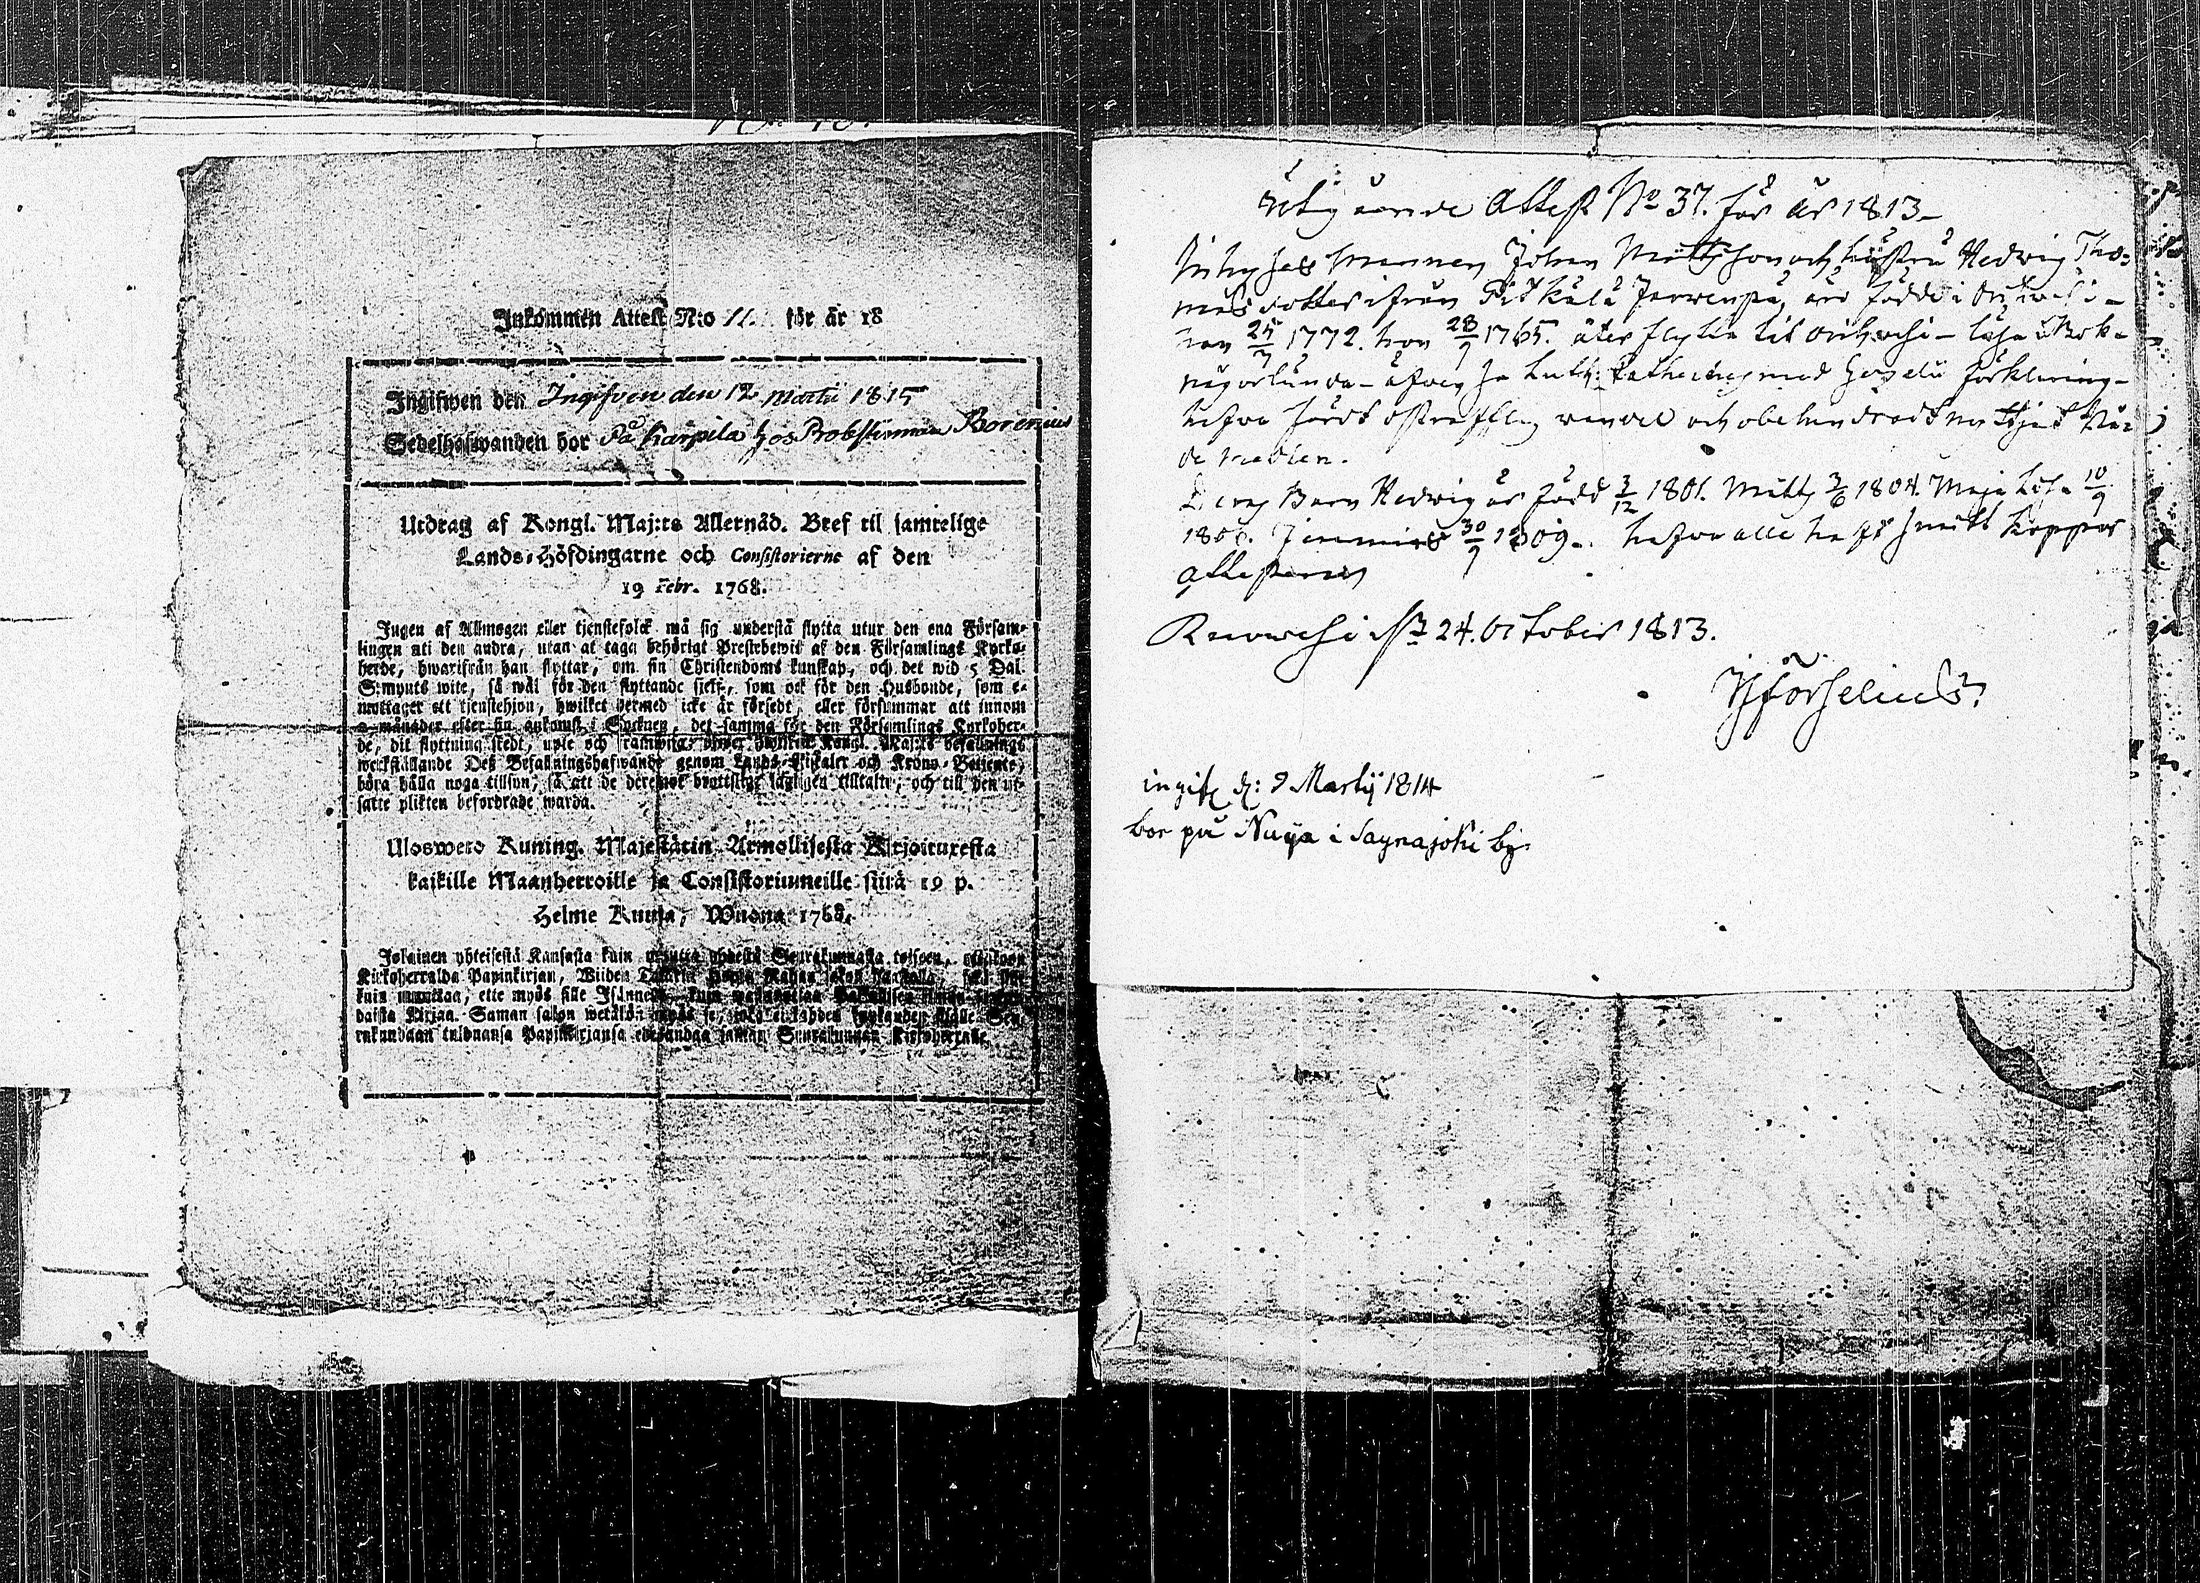 Inkommen Attest N:o 11. för år 18
Ingifwen den Ingifven den 12 Martii 1815
Sedelhafwanden bor På Karpila hos Probstinnan Borenius
Utdrag af Kongl. Maj:ts Allernåd. Bref til samtelige
Lands-Höfdingarne och Consistorierne af den
19 Febr. 1768.
Ingen af Allmogen eller tjenstefolck må sig understå flytta utur den ena Försam-
lingen uti den andra, utan at taga behörigt Prestebewis af den Församlings Kyrko-
herde, hwarifrån han flyttar, om sin Christendoms kunskap, och det wid 5 Dal.
S:mynts wite, så wäl för den flyttande sielf, som ock för den Husbonde, som e-
mottager ett tjenstehjon, hwilket hermed icke är försedt, eller försummar att innom
månader efter sin ankomst i Socknen, det samma för den Församlings Kyrkoher-
de, dit flyttning skedt, upte och framwisa; öfwer hwilket Kongl. Maj:ts befallnings
werkställande Deß Befallningshafwande genom Lands-Fiskaler och Krono-Betjente,
böra hålla noga tillsyn, så att de deremot brottslige lagligen tilltalte, och till den ut-
satte plikten befordrade warda.
Uloswero Kuning. Majestätin Armollisesta Kirjoituxesta
kaikille Maanherroille ja Consistoriumeille siitä 19 p.
Helme Kuusa, Wuona 1768.
Jokainen yhteisestä Kansasta kuin muutta yhdestä Seurakunnasta toiseen, ottakoon
Kirkoherralda Papinkirjan, Wiiden Talarin
kuin muuttaa, ette myös sille Isännelle, kuin
daista Kirjaa. Saman sakon wetäkön myös se, joka ei kahden kuukauden sisälle Seu-
rakundaan tulduansa Papinkirjansa edesandaa saman Seurakunnan Kirkoherralle.
Utgående Attest No 37. för år 1813-
Inhyses Mannen Johan Mattsson och hustru Hedwig Tho-
masdotter ifrån Pitkälä Jerwenpä, äro födde i Orihwesi-
han 25/7 1772. hon 28/9 1765. åter flytta til Orihwesi- läsa i Bok-
någorlunda- äfwen så Luth: Catheches med Gezelii förklaring-
hafwa fördt ostrafflig wandel och obehindradt nyttjat Nå-
de medlen.
Deras Barn Hedwig är född 3/12 1801. Matts 3/6 1804. Maja Lisa 10/9
1806. Jeremias 30/9 1809. hafwa alla haft Smitt koppor
attesterar
Ruowesi d. 24. October 1813.
ingif. d: 9 Martij 1814
bor på Nuija i Saynajoki by.